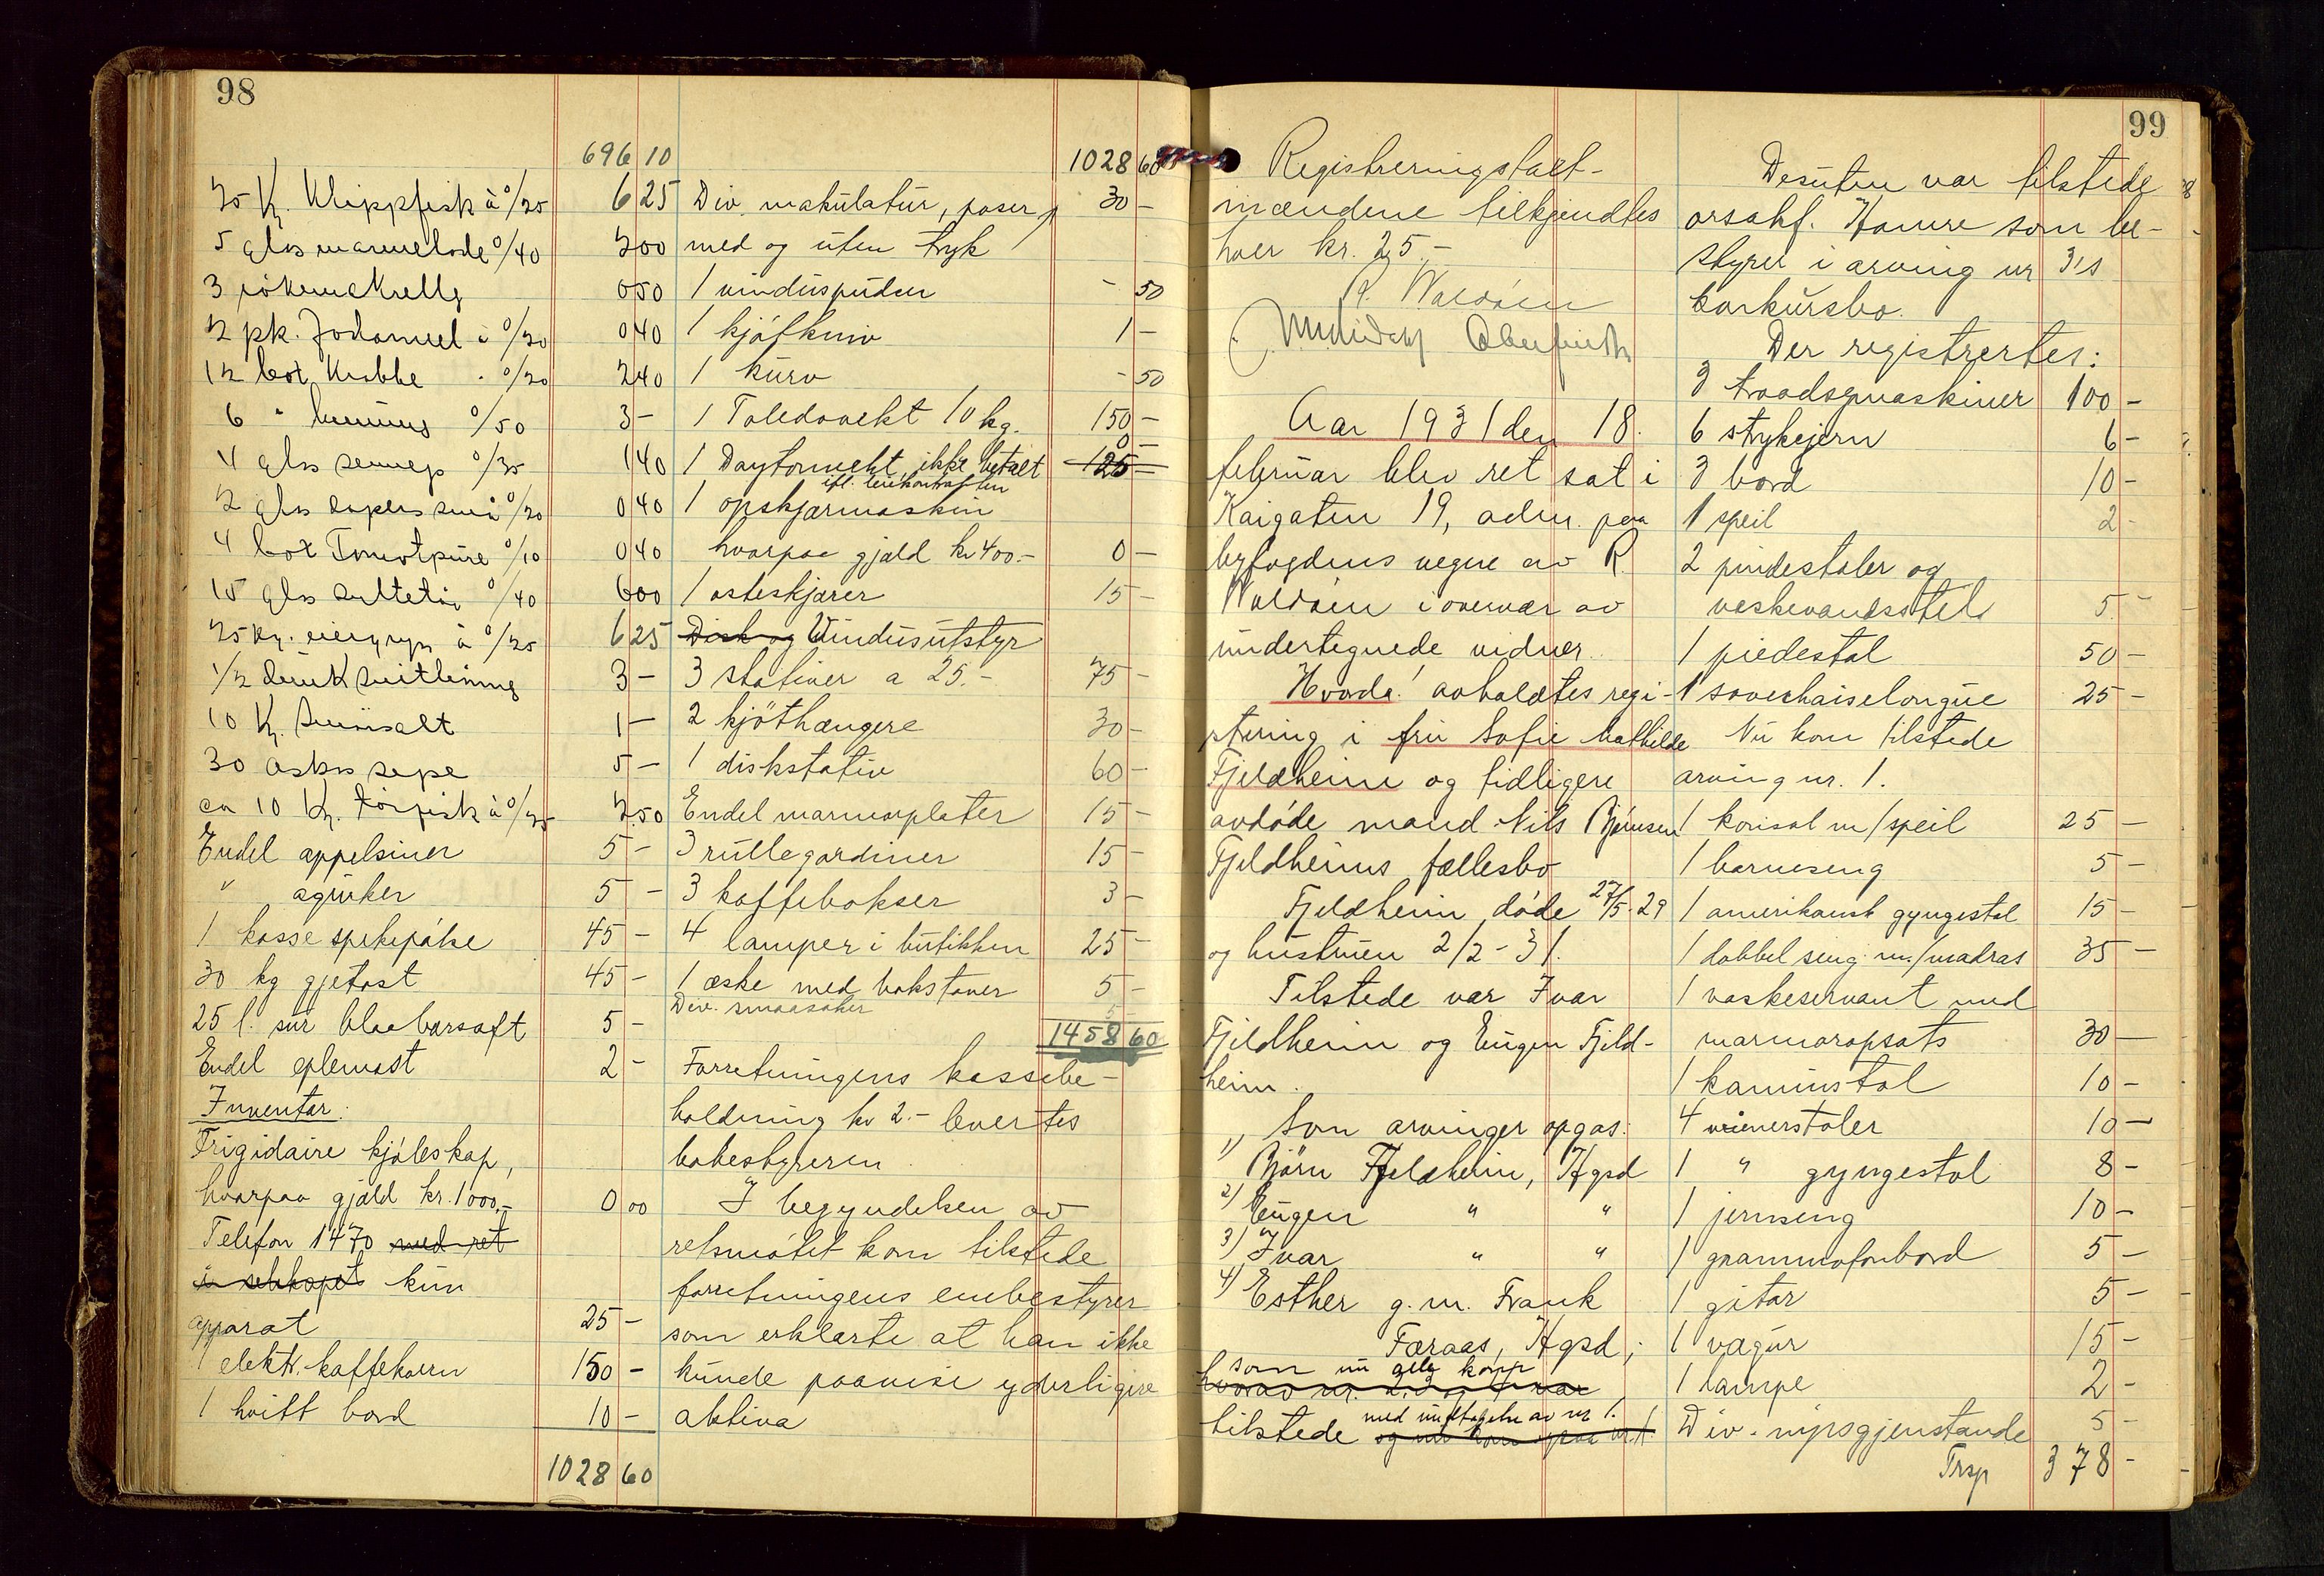 98
696 10
25 Kg. Klippfisk à 0/25 6 25
5 glas marmelade 0/40 2 00
3 0 50
2 pk. à 0/20 0 40
12 box Krabbe - 0/20 2 40
6 " 0/50 3 -
4 glas sennep 0/35 1 40
2 glas kapers små 0/20 0 40
4 box Tomatpure 0/10 0 40
15 glas sultetøi 0/40 6 00
25 kg. à 0/25 6 25
1/2 3 -
10 Kg. 1 -
30 æsker sepe 5 -
ca 10 Kg. tørfisk à 0/25 2.50
Endel appelsiner 5 -
" agurker 5 -
1 kasse spekepølse 45 -
30 kg gjetost 45 -
25 l. sur blaabærsaft 5 -
Endel eplemost 2 -
Inventar:
Frigidaire kjøleskap,
hvorpaa gjæld kr. 1000.- 0 00
Telefon 1470 med ret
i selskapet kun
apparat 25 -
1 elektr. kaffekvern 150 -
1 hvitt bord 10 -
1028 60
1028 60
Div. makulatur, poser 30 -
med og uten tryk
1 vinduspudser - 50
1 kjøtkniv 1 -
1 kurv - 50
1 Toledovekt 10 kg. 150 -
1 Daytonvekt, ikke betalt 125 0 -
ifl. leiekontrakten
1 opskjærmaskin
hvorpaa gjæld kr 400.- 0 -
1 osteskjærer 15 -
Disk og Vindusutstyr
3 stativer a 25.- 75 -
2 kjøthængere 30 -
1 diskstativ 60 -
Endel marmorplater 15 -
3 rullegardiner 15 -
3 kaffebokser 3 -
4 lamper i butikken 25 -
1 æske med bokstaver 5 -
Div. smaasaker 5
1458 60
Forretningens kassebe-
holdning kr 2.- levertes
bobestyreren.
I begyndelsen av
retsmøtet kom tilstede
forretningens enebestyrer
som erklærte at han ikke
kunde paavise yderligere
aktiva
99
Registreringstakst-
mændene tilkjendtes
hver kr. 25.-
R. Waldøen
Aar 1931 den 18.
februar blev ret sat i
Kaigaten 19, adm. paa
byfogdens vegne av R.
Waldøen i overvær av
undertegnede vidner.
Hvorda! avholdtes regi-
strering i fru Sofie Mathilde
Fjeldheim og tidligere
avdøde mand Nils Bjørnsen
Fjeldheims fællesbo
Fjeldheim døde 27/5-29
og hustruen 2/2-31.
Tilstede var Ivar
Fjeldheim og Eugen Fjeld-
heim.
Som arvinger opgas:
1) Bjørn Fjeldheim, Hgsd
2) Eugen " "
3) Ivar " "
4) Esther g.m. Frank
Færaas, Hgsd;
som nu alle kom
hvorav nr. 2, 3 og 4 var
tilstede med undtagelse av nr 1.
og nu kom ogsaa nr. 1.
Desuten var tilstede
orsakf. Hamre som be-
styrer i arving nr 3's
konkursbo.
Der registrertes:
3 traadsymaskiner 100 -
6 strykejern 6 -
3 bord 10 -
1 speil 2 -
2 pindestoler og
vaskevandsstel 5 -
1 piedestal 50 -
1 sovechaiselongue 25 -
Nu kom tilstede
arving nr. 1.
1 konsol m/speil 25 -
1 barneseng 5 -
1 amerikansk gyngestol 15 -
1 dobbel seng m/madras 35 -
1 vaskeservant med
marmoropsats 30 -
1 kaminstol 10 -
4 wienerstoler 10 -
1 " gyngestol 8 -
1 jernseng 10 -
1 grammofonbord 5 -
1 gitar 5 -
1 vægur 15 -
1 lampe 2 -
Div. nipsgjenstande 5 -
Trsp 378 -